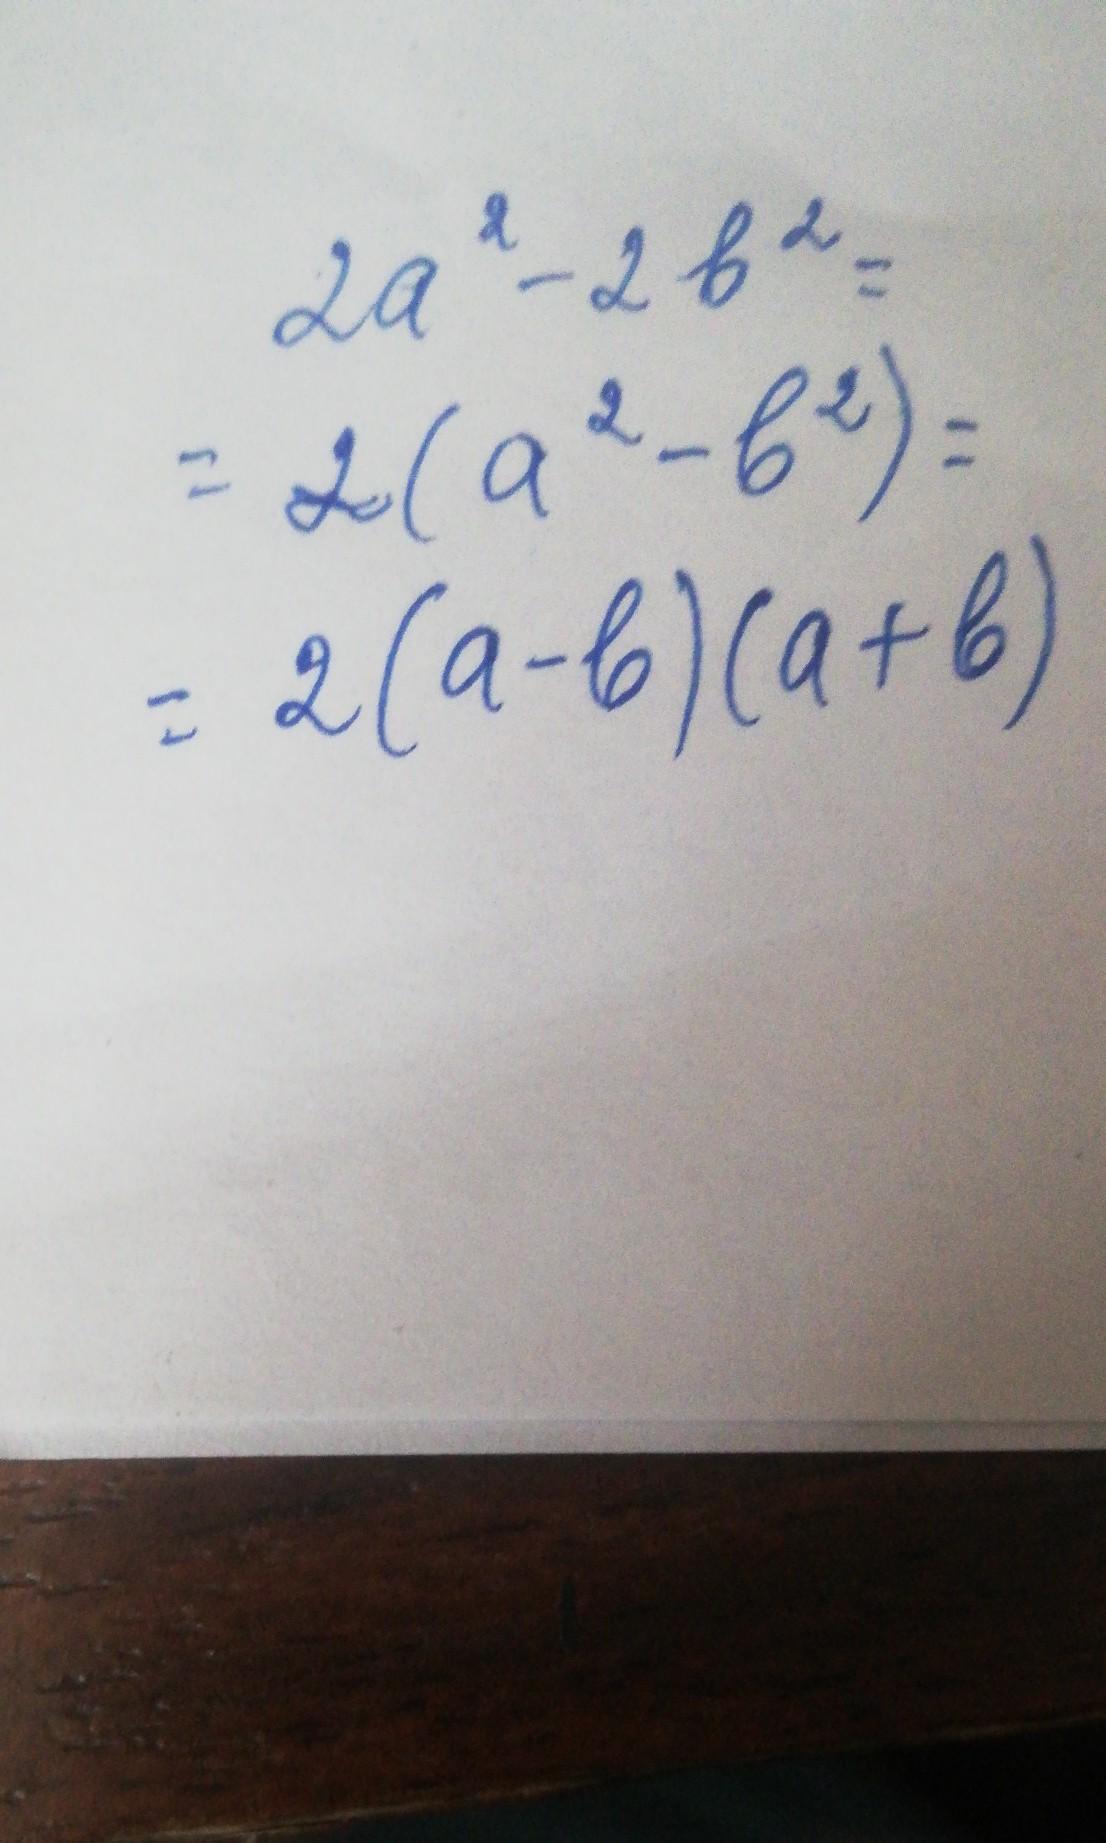 2a² - 2b² =
= 2(a² - b²) =
= 2(a - b)(a + b)